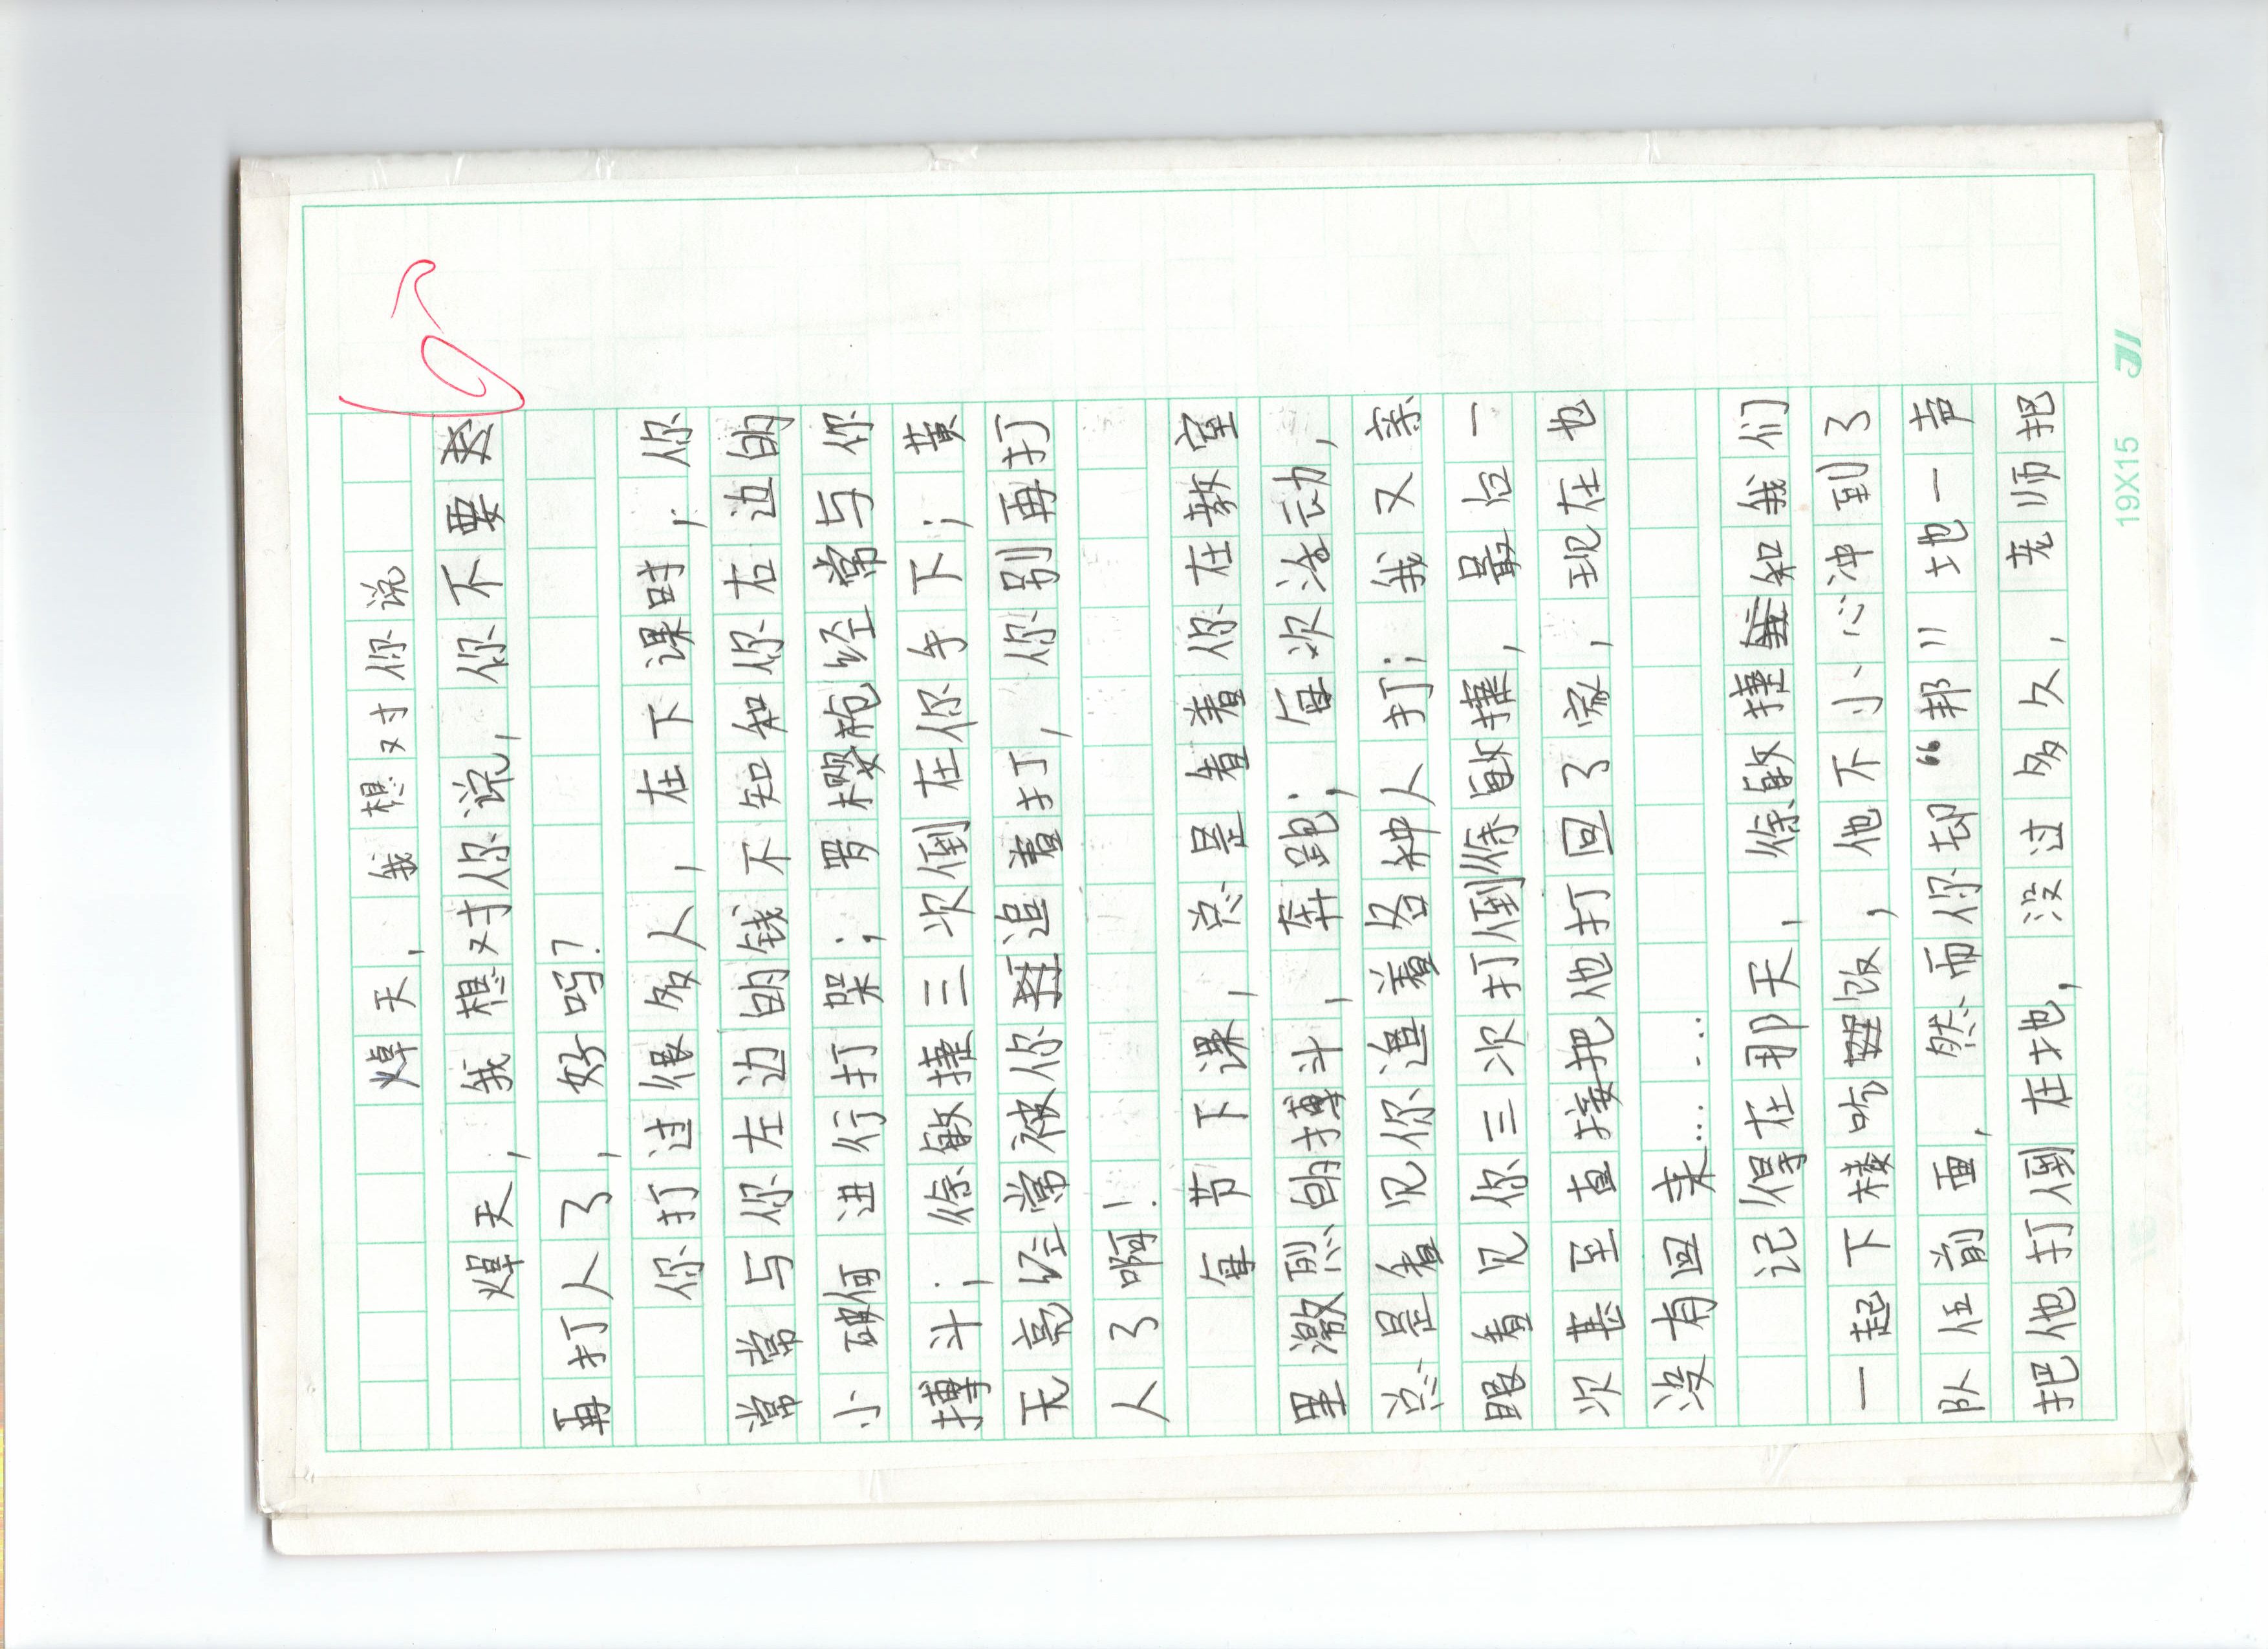 焯天，我想对你说
焯天，我想对你说，你不要
再打人了，好吗？
你打过很多人，在下课时，你
常常与你左边的钱不知和你右边的
小 何进行打架；罗樱艳经常与你
搏斗；徐敏捷三次倒在你手下；黄
无亮经常被你追着打，你别再打
人了啊！
每节下课，总是看着你在教室
里激烈的搏斗，奔跑；每次活动，
总是看见你追着各种人打；我又亲
眼看见你三次打倒徐敏捷，最后一
次甚至直接把他打回了家，现在也
没有回来……
记得在那天，徐敏捷和我们
一起下楼吃饭，他不小心冲到了
队伍前面，然而你却“邦”地一声
把他打倒在地，没过多久，老师把
19X15